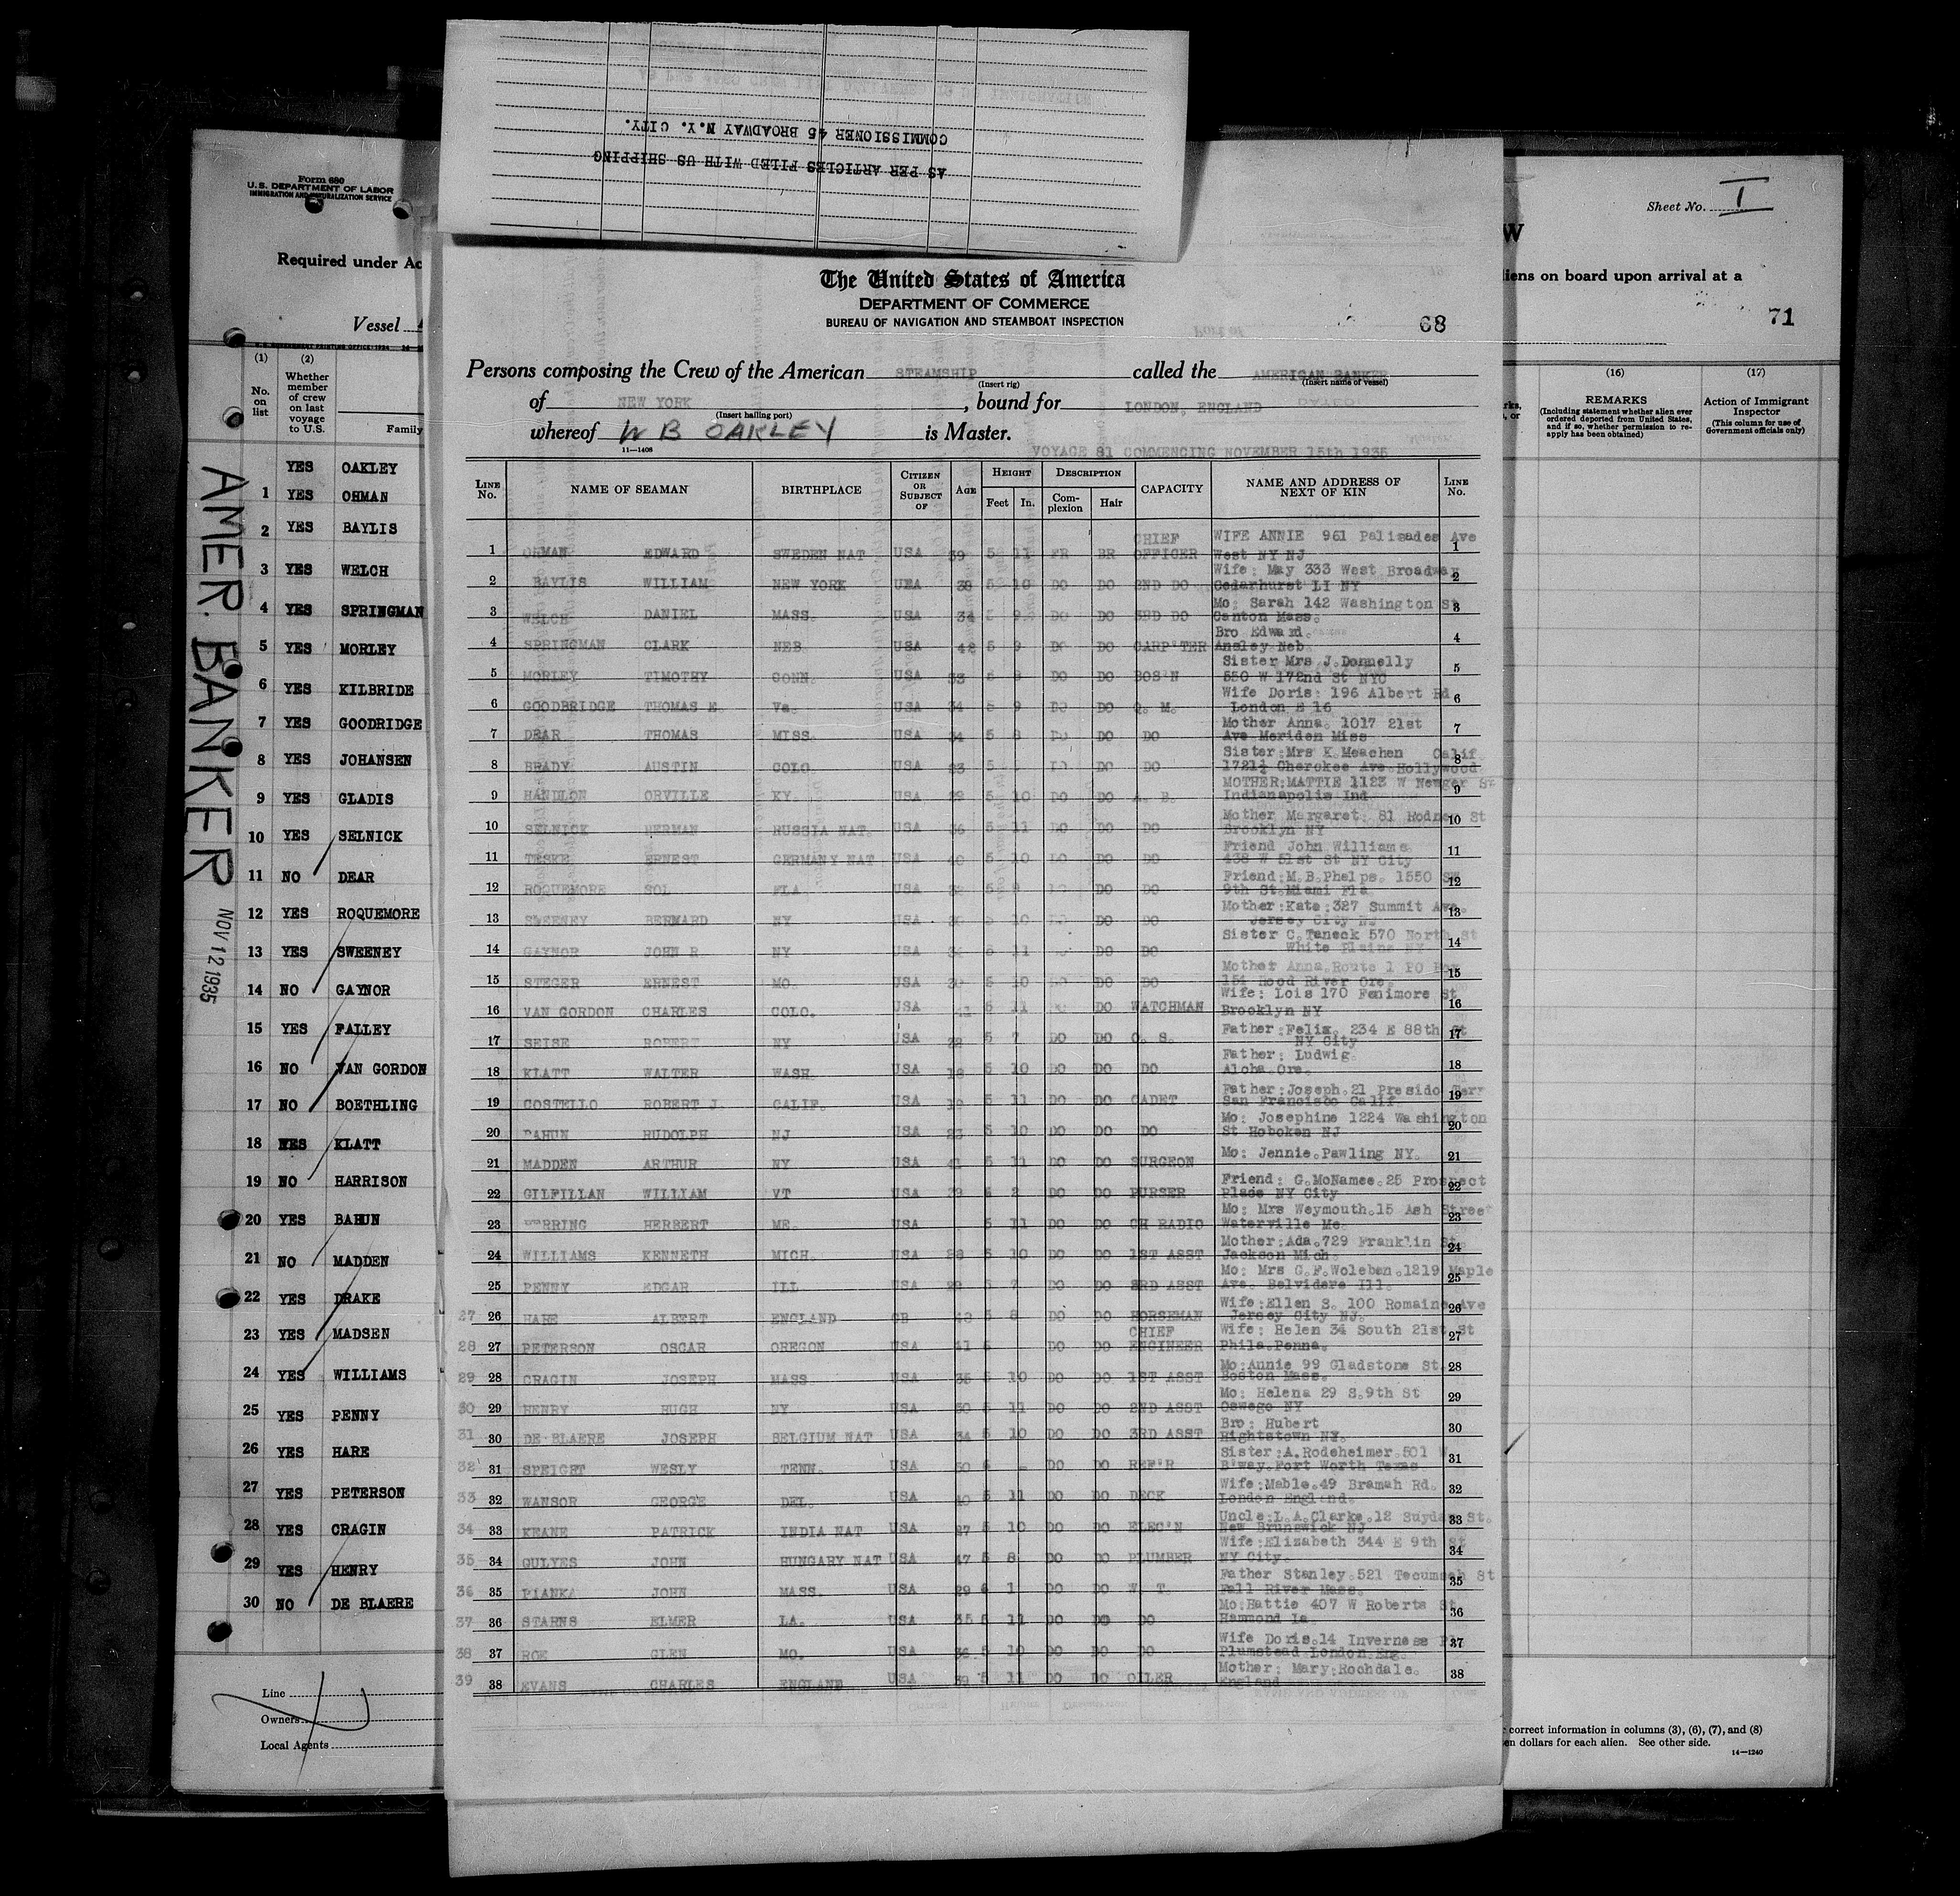 AS PER ARTICLES FILED WITH US SHIPPING
COMISSIONER 45 BROADWAY N.Y. CITY.
Form 680
U.S. DEPARTMENT OF LABOR
IMMIGRATION AND NATURALIZATION SERVICE
Required under Ac
Vessel
(1) (2)
No. on list
Whether member of crew on last voyage to U.S.
Family
YES OAKLEY
1 YES OHMAN
2 YES BAYLIS
3 YES WELCH
4 YES SPRINGMAN
5 YES MORLEY
6 YES KILBRIDE
7 YES GOODRIDGE
8 YES JOHANSEN
9 YES GLADIS
10 YES SELNICK
11 NO DEAR
12 YES ROQUEMORE
13 YES SWEENEY
14 NO GAYNOR
15 YES FALLEY
16 NO VAN GORDON
17 NO BOETHLING
18 YES KLATT
19 NO HARRISON
20 YES BAHUN
21 NO MADDEN
22 YES DRAKE
23 YES MADSEN
24 YES WILLIAMS
25 YES PENNY
26 YES HARE
27 YES PETERSON
28 YES CRAGIN
29 YES HENRY
30 NO DE BLAERE
Line
Owners
Local Agents
AMER. BANKER
NOV 12 1935
The United States of America
DEPARTMENT OF COMMERCE
BUREAU OF NAVIGATION AND STEAMBOAT INSPECTION
68
Persons composing the Crew of the American STEAMSHIP called the AMERICAN BANKER
(Insert rig) (Insert name of vessel)
of NEW YORK, bound for LONDON, ENGLAND
(Insert hailing port)
whereof W B OAKLEY is Master.
11—1408
VOYAGE 81 COMMENCING NOVEMBER 15th 1935
LINE No. NAME OF SEAMAN BIRTHPLACE CITIZEN OR SUBJECT OF AGE HEIGHT Feet In. DESCRIPTION Complexion Hair CAPACITY NAME AND ADDRESS OF NEXT OF KIN LINE No.
1 OHMAN EDWARD SWEDEN NAT USA 39 5 11 FR BR CHIEF OFFICER WIFE ANNIE 961 Palisades Ave West NY NJ 1
2 BAYLIS WILLIAM NEW YORK USA 38 5 10 DO DO 2ND DO Wife: May 333 West Broadway Cedarhurst LI NY 2
3 WELCH DANIEL MASS. USA 34 5 9 DO DO 3RD DO Mo: Sarah 142 Washington St Canton Mass. 3
4 SPRINGMAN CLARK NEB USA 42 5 9 DO DO CARP'TER Bro Edward. Ansley Neb. 4
5 MORLEY TIMOTHY CONN. USA 33 5 8 DO DO BOS'N Sister Mrs J Donnelly 550 W 172nd St NYC 5
6 GOODBRIDGE THOMAS E. Va. USA 34 5 9 DO DO Q. M. Wife Doris: 196 Albert Rd London E 16 6
7 DEAR THOMAS MISS. USA 34 5 8 DO DO DO Mother Anna. 1017 21st Ave Meriden Miss 7
8 BRADY AUSTIN COLO. USA 23 5 DO DO DO Sister:Mrs K Meachen Calif. 1721½ Cherokee Ave Hollywood 8
9 HANDLON ORVILLE KY. USA 5 10 DO DO A. B. MOTHER:MATTIE 1123 W St Indianapolis Ind 9
10 SELNICK HERMAN RUSSIA NAT. USA 36 5 11 DO DO DO Mother Margaret: 81 Rodney St Brooklyn NY 10
11 TESKE ERNEST GERMANY NAT USA 40 5 10 DO DO DO Friend John Williams 438 W 51st St NY City 11
12 ROQUEMORE SOL FLA USA 5 9 DO DO Friend:M.B.Phelps. 1550 SW 9th St.Miami Fla 12
13 SWEENEY BERNARD NY USA 5 10 DO DO Mother:Kate: 327 Summit Ave. Jersey City NJ 13
14 GAYNOR JOHN R. NY USA 5 11 DO DO Sister C.Taneck 570 North St White Plains NY 14
15 STEGER ERNEST MO. USA 5 10 DO DO Mother Anna.Route 1 PO Box 154 Hood River Ore. 15
16 VAN GORDON CHARLES COLO. USA 41 5 11 DO WATCHMAN Wife: Lois 170 Fenimore St Brooklyn NY 16
17 SEISE ROBERT NY USA 22 5 7 DO DO O. S. Father:Felix. 234 E 88th St NY City 17
18 KLATT WALTER WASH. USA 18 5 10 DO DO DO Father: Ludwig. Aloha Ore. 18
19 COSTELLO ROBERT J. CALIF. USA 19 5 11 DO DO CADET Father:Joseph.21 Presido Terr San Francisco Calif 19
20 BAHUN RUDOLPH NJ USA 23 5 10 DO DO DO Mo: Josephine 1224 Washington St Hoboken NJ 20
21 MADDEN ARTHUR NY USA 41 5 11 DO DO SURGEON Mo: Jennie.Pawling NY. 21
22 GILFILLAN WILLIAM VT USA 5 2 DO DO PURSER Friend: G.McNamee.25 Prospect Place NY City 22
23 HERRING HERBERT ME. USA 5 11 DO DO CH RADIO Mo: Mrs Weymouth.15 Ash Street Waterville Me. 23
24 WILLIAMS KENNETH MICH. USA 28 5 10 DO DO 1ST ASST Mother:Ada.729 Franklin St. Jackson Mich. 24
25 PENNY EDGAR ILL USA 5 7 DO DO 3RD ASST Mo: Mrs G.F.Woleben.1219 Maple Ave. Belvidere Ill. 25
27 26 HARE ALBERT ENGLAND GB 43 5 8 DO DO HORSEMAN Wife:Ellen S. 100 Romaine Ave Jersey City NJ. 26
28 27 PETERSON OSCAR OREGON USA 41 6 DO DO CHIEF ENGINEER Wife: Helen 34 South 21st St Phila.Penna. 27
29 28 CRAGIN JOSEPH MASS. USA 35 5 10 DO DO 1ST ASST Mo:Annie 99 Gladstone St. Boston Mass. 28
30 29 HENRY HUGH NY USA 50 5 11 DO DO 2ND ASST Mo: Helena 29 S.9th St Oswego NY 29
31 30 DE BLAERE JOSEPH BELGIUM NAT USA 34 5 10 DO DO 3RD ASST Bro: Hubert Hightstown NY. 30
32 31 SPEIGHT WESLY TENN. USA 50 6 - DO DO REF'R Sister:A.Rodeheimer.501 W B'way.Fort Worth Texas 31
33 32 WANSOR GEORGE DEL. USA 40 5 11 DO DO DECK Wife:Mable.49 Bramah Rd. London England. 32
34 33 KEANE PATRICK INDIA NAT USA 27 5 10 DO DO ELEC'N Uncle:L.A.Clarke.12 Suydam St. New Brunswick NJ 33
35 34 GULYES JOHN HUNGARY NAT USA 47 5 8 DO DO PLUMBER Wife:Elizabeth 344 E 9th St NY City. 34
36 35 PIANKA JOHN MASS. USA 29 6 1 DO DO W. T. Father Stanley.521 Tecumseh St Fall River Mass. 35
37 36 STARNS ELMER LA. USA 35 5 11 DO DO DO Mo:Hattie 407 W Roberts St. Hammond La 36
38 37 ROE GLEN MO. USA 36 5 10 DO DO DO Wife Doris.14 Inverness Pl Plumstead London Eng. 37
39 38 EVANS CHARLES ENGLAND USA 39 5 11 DO DO OILER Mother: Mary:Rochdale. England 38
Sheet No. I
W
iens on board upon arrival at a
71
(16) (17)
REMARKS
(Including statement whether alien ever ordered deported from United States, and if so, whether permission to reapply has been obtained)
Action of Immigrant Inspector
(This column for use of Government officials only)
correct information in columns (3), (6), (7), and (8)
en dollars for each alien. See other side.
14—1240